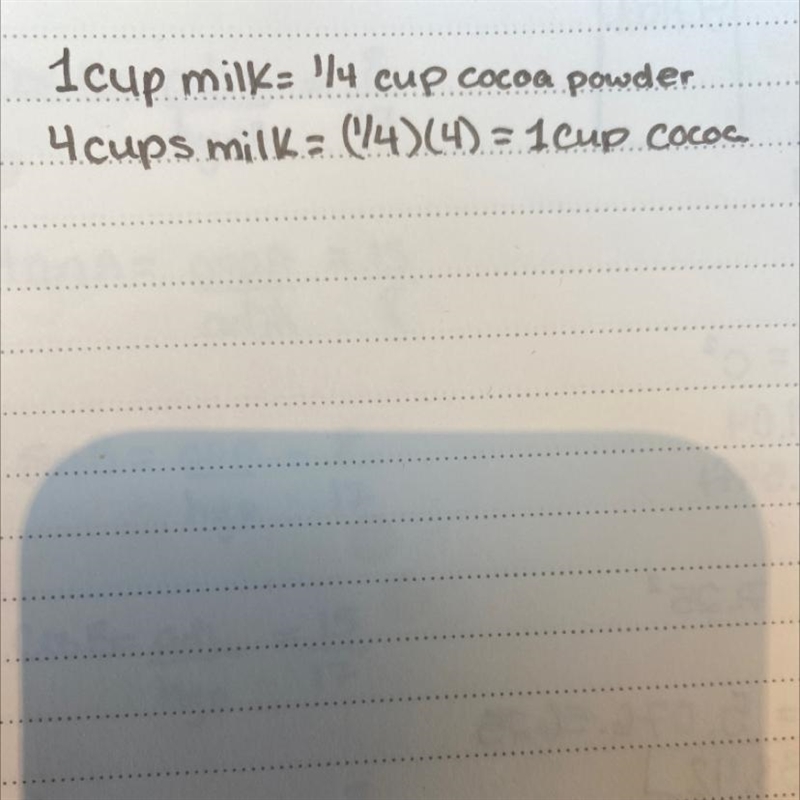 1 cup milk = 1/4 cup cocoa powder
4 cups milk = (1/4)(4) = 1 cup cocoa